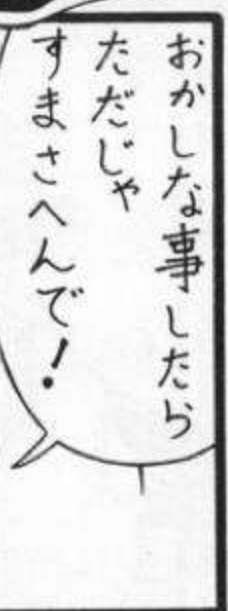 おかしな事したら
ただじゃ
すまさへんで！